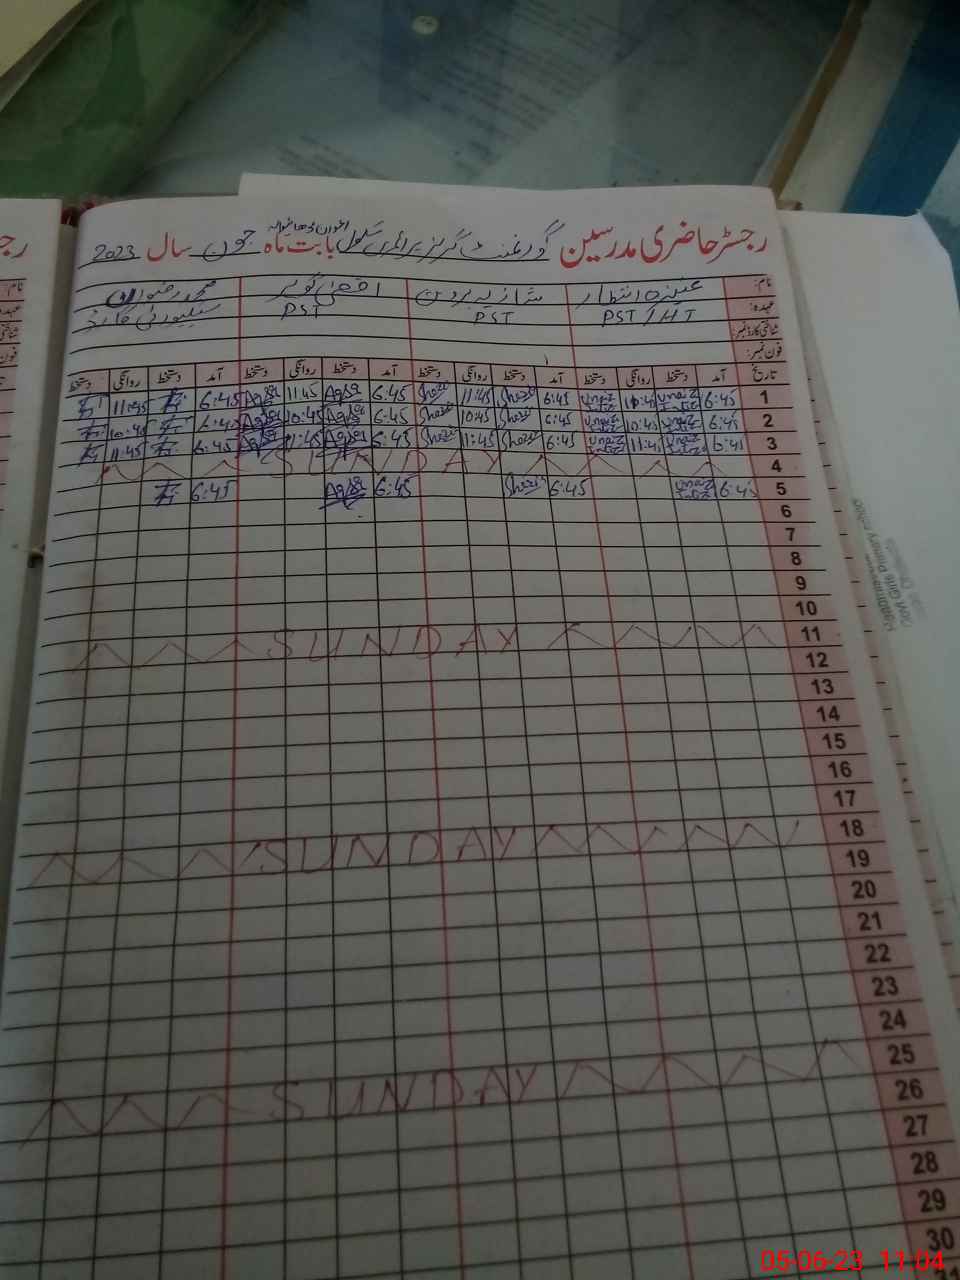 رجسٹر حاضری مدرسین گورنمنٹ گرلز پرائمری سکول بابت ماہ جون سال 2023
نام: عنیزہ انتظار شازیہ پروین اقصیٰ کوثر محمد رضوان
عہدہ: PST/HT PST PST سیکیورٹی گارڈ
شناختی کارڈ نمبر:
فون نمبر:
تاریخ آمد دستخط روانگی دستخط آمد دستخط روانگی دستخط آمد دستخط روانگی دستخط آمد دستخط روانگی دستخط
1 6:45 Unaiza Intizar 11:45 Unaiza Intizar 6:45 Shazi 11:45 Shazi 6:45 Aqsa 11:45 Aqsa 6:45 11:45
2 6:45 Unaiza Intizar 10:45 Unaiza Intizar 6:45 Shazi 10:45 Shazi 6:45 Aqsa 10:45 Aqsa 6:45 10:45
3 6:45 Unaiza Intizar 11:45 Unaiza Intizar 6:45 Shazi 11:45 Shazi 6:45 Aqsa 11:45 Aqsa 6:45 11:45
4 SUNDAY
5 6:45 Unaiza Intizar 6:45 Shazi 6:45 Aqsa 6:45
6
7
8
9
10
11 SUNDAY
12
13
14
15
16
17
18 SUNDAY
19
20
21
22
23
24
25 SUNDAY
26
27
28
29
30
31
05-06-23 11:04